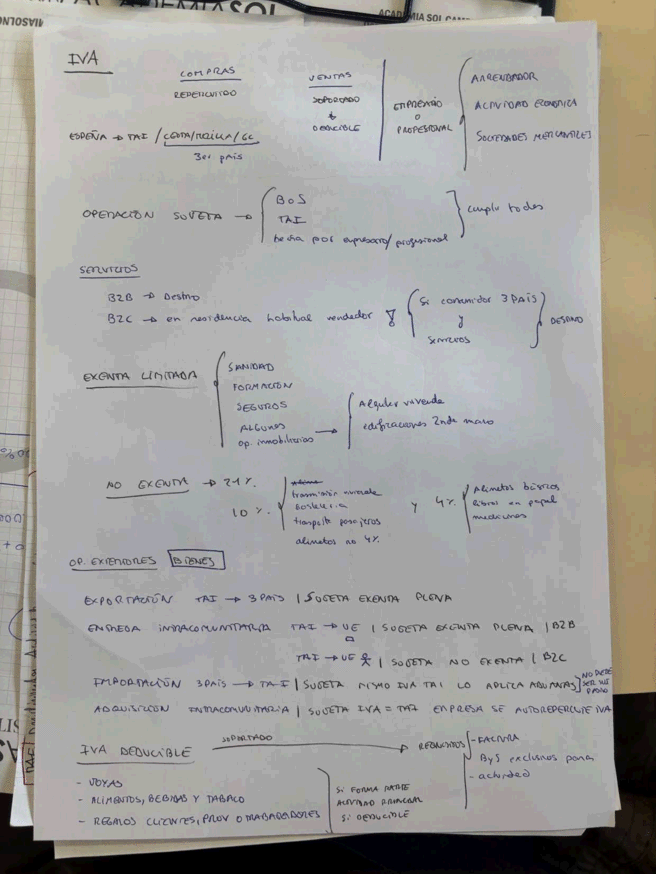 ACADEMIA SOL
IVA
COMPRAS
REPERCUTIDO
VENTAS
SOPORTADO
&
DEDUCIBLE
EMPRESARIO
O
PROFESIONAL
ARRENDADOR
ACTIVIDAD ECONOMICA
SOCIEDADES MERCANTILES
ESPAÑA → TAI / CEUTA/MELILLA/GC
3er país
OPERACIÓN SUJETA →
BoS
TAI
hecha por empresario/profesional
cumplir todas
SERVICIOS
B2B → Destino
B2C → en residencia habitual vendedor
Si consumidor 3 PAÍS
y
servicios
DESTINO
EXENTA LIMITADA
SANIDAD
FORMACIÓN
SEGUROS
ALGUNOS
op. inmobiliarias →
Alquiler vivienda
edificaciones 2nda mano
NO EXENTA → 21%
10%
transmisión vivienda
hostelería
transporte pasajeros
alimentos no 4%
y 4%
Alimentos básicos
libros en papel
medicinas
OP. EXTERIORES BIENES
EXPORTACIÓN TAI → 3 PAÍS | SUJETA EXENTA PLENA
ENTREGA INTRACOMUNITARIA TAI → UE | SUJETA EXENTA PLENA | B2B
TAI → UE | SUJETA NO EXENTA | B2C
IMPORTACIÓN 3 PAÍS → TAI | SUJETA MISMO IVA TAI LO APLICA ADUANAS
NO DEBE
SER SU
PAGO
ADQUISICIÓN INTRACOMUNITARIA = SUJETA IVA = TAI EMPRESA SE AUTOREPERCUTE IVA
IVA DEDUCIBLE
SOPORTADO → REQUISITOS
- FACTURA
ByS exclusivos para
- actividad
- JOYAS
- ALIMENTOS, BEBIDAS Y TABACO
- REGALOS CLIENTES, PROV O TRABAJADORES
SI FORMA PARTE
ACTIVIDAD PRINCIPAL
SI DEDUCIBLE